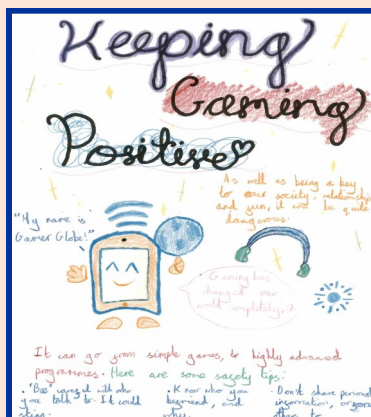 Keeping
Gaming
Positive
As well as being a key
to our society, relationships
and fun, it can be quite
dangerous.
"My name is
Gamer Globe!"
Gaming has
changed our
world completely!
It can go from simple games, to highly advanced
programmes. Here are some safety tips:
• 'Bee' careful with who
you talk to. It could
• Know who you
befriend, and
why.
• Don't share personal
information, or
other